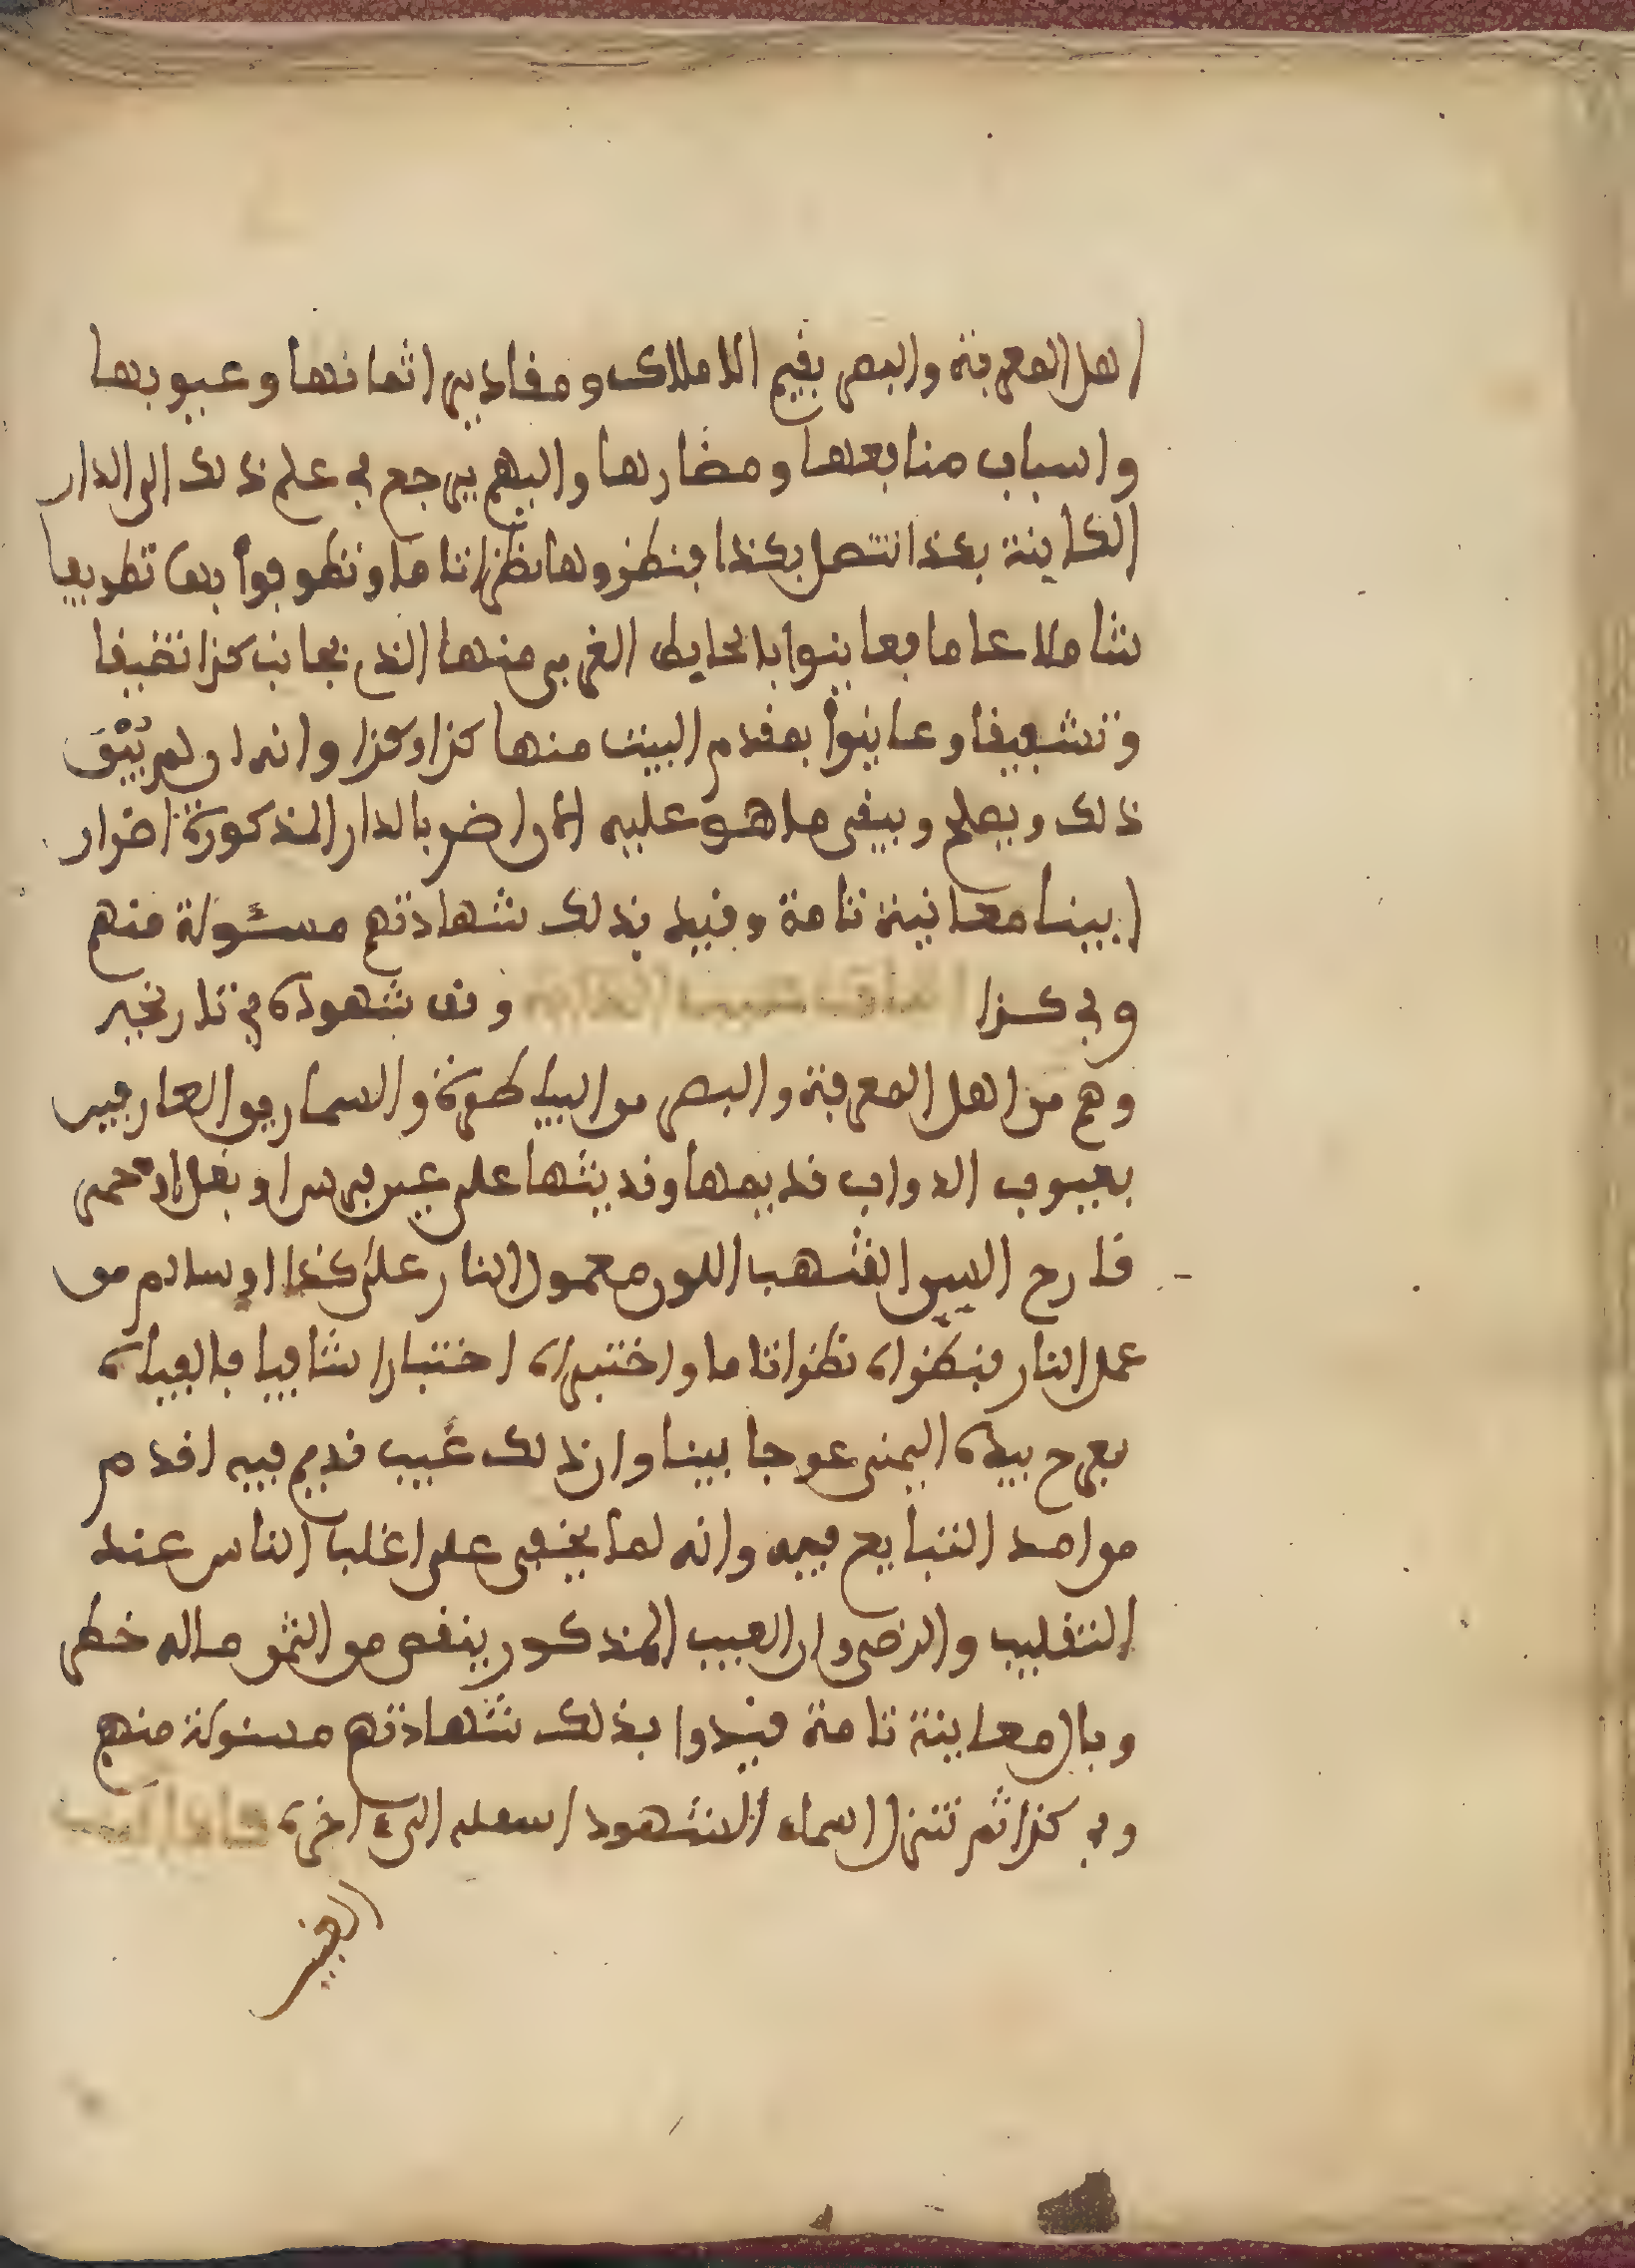 اهل المعرفة والبصر بقيم الاملاك ومقادير اثمانها وعيوبها
واسباب منافعها ومضارها واليهم يرجع في علم ذلك الى الدار
الكاينة بكذا تتصل بكذا فنظروها نظرا تاما وتطوفوا بها تطويفا
شاملا عاما فعاينوا بالحايط الغربي منها الذي بجانب كذا
وتشعيفا وعاينوا بمقدم البيت منها كذا وكذا وانه ان لم
ذلك ويصلح وبيقى ما هو عليه اضر بالدار المذكورة اضرار
ا بينا معاينة تامة وقيد بذلك شهادتهم مسئولة منهم
وفي كذا وقف شهوده في تاريخه
وهم من اهل المعرفة والبصر من البياطرة والسمارين العارفين
بعيوب الدواب قديمها وحديثها على عين فرس او بغل
قارح السن اشهب اللون معمول النار على كذا او سالم من
عمل النار فنظروا نظرا تاما واختبراه اختبارا شافيا فالفياه
يعرج بيده اليمنى عوجا بينا وان ذلك عيب قديم فيه اقدم
من امد التبايع فيه وانه لما يخفى على اغلب الناس عند
التقليب والرضى وان العيب المذكور ينقص من الثمن ماله خطر
وبال معاينة تامة قيدوا بذلك شهادتهم مسئولة منهم
وفي كذا ثم تنزل اسماء الشهود اسفله الى اخره